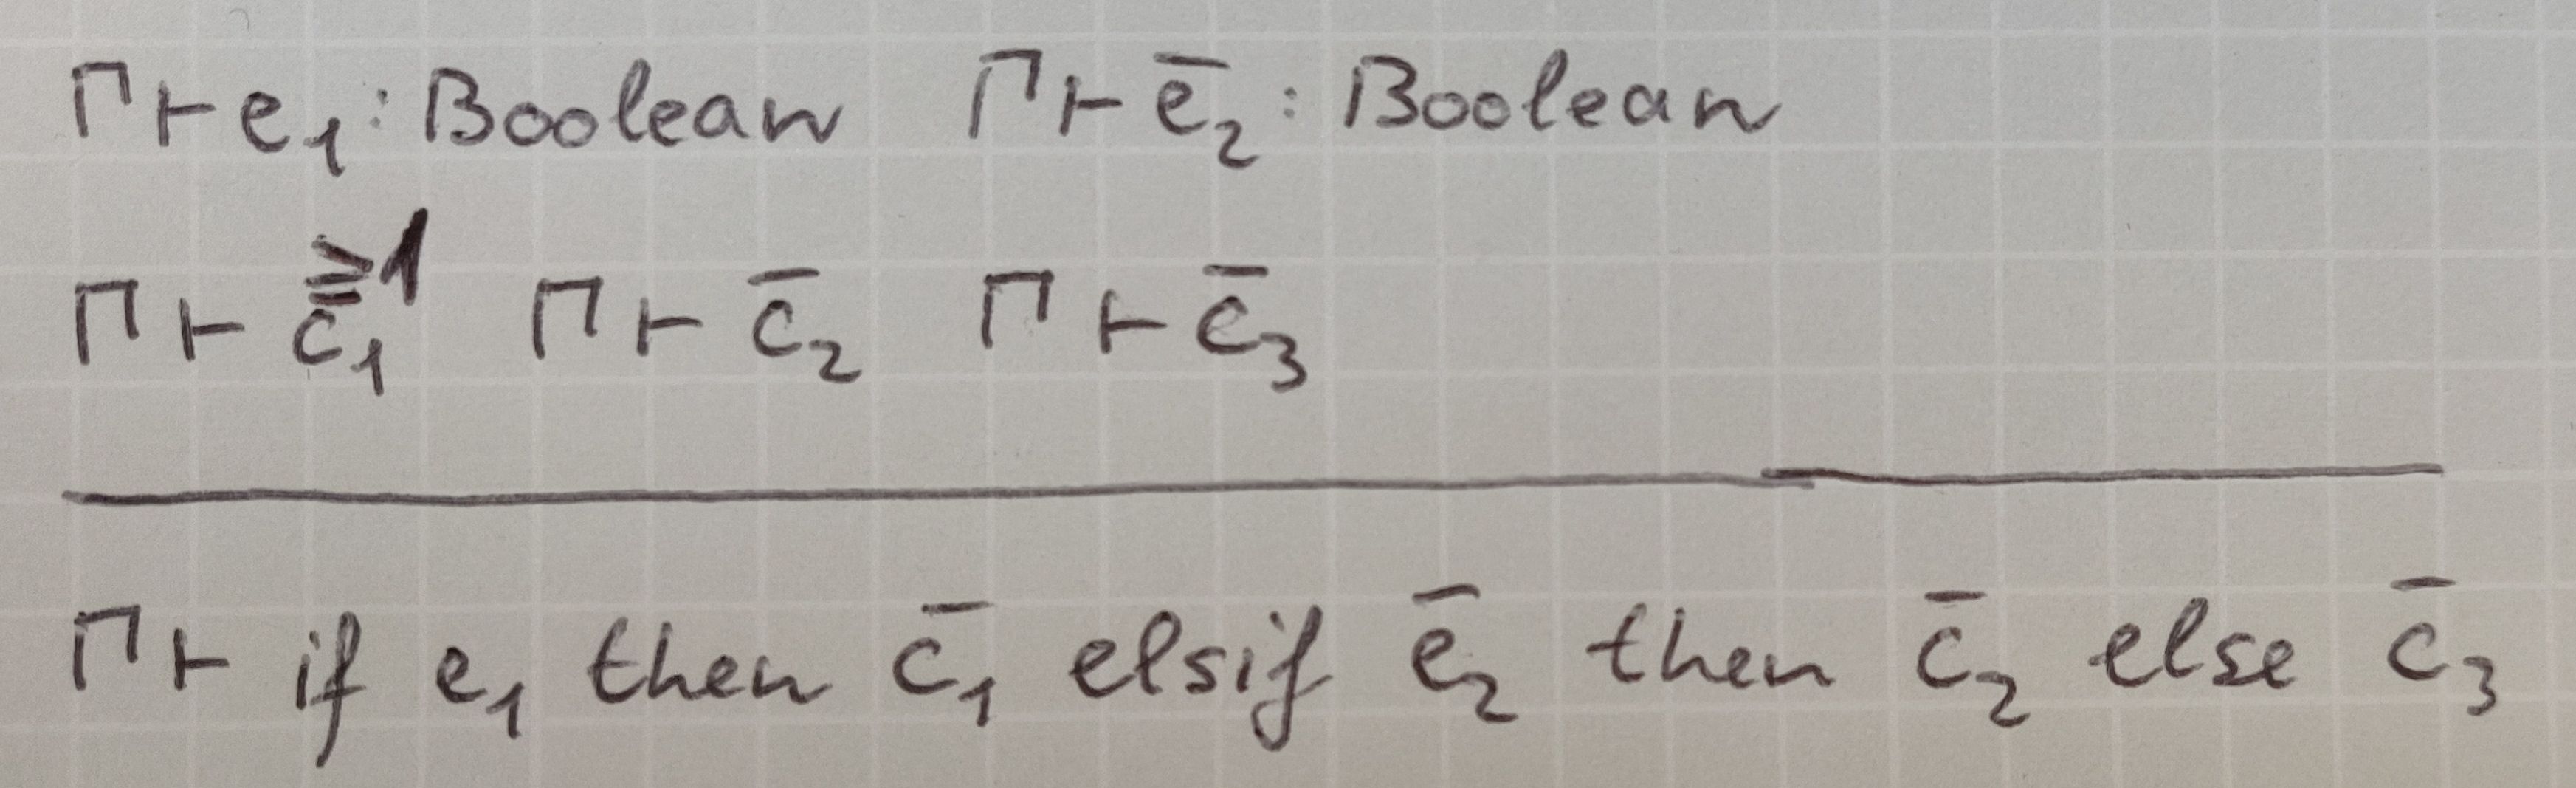 Γ ⊢ e₁ : Boolean Γ ⊢ e̅₂ : Boolean
Γ ⊢ c̅₁^≥1 Γ ⊢ c̅₂ Γ ⊢ c̅₃
Γ ⊢ if e₁ then c̅₁ elsif e̅₂ then c̅₂ else c̅₃